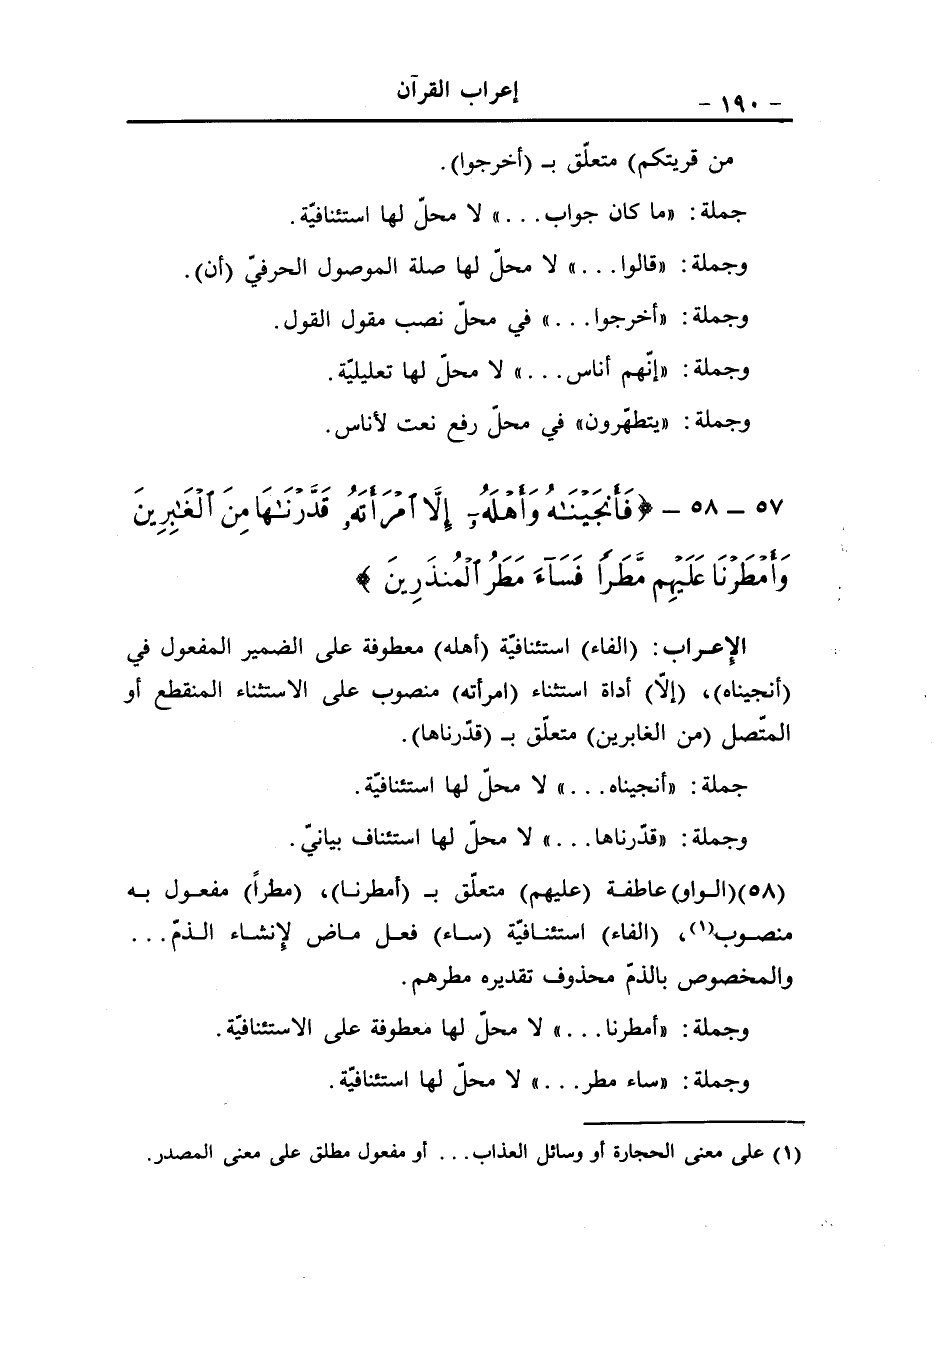 - ١٩٠ -
إعراب القرآن
من قريتكم) متعلّق بـ (أخرجوا).
جملة: «ما كان جواب...» لا محلّ لها استئنافيّة.
وجملة: «قالوا...» لا محلّ لها صلة الموصول الحرفيّ (أن).
وجملة: «أخرجوا...» في محلّ نصب مقول القول.
وجملة: «إنّهم أناس...» لا محلّ لها تعليليّة.
وجملة: «يتطهّرون» في محلّ رفع نعت لأناس.
٥٧ - ٥٨ - ﴿فَأَنجَيْنَٰهُ وَأَهْلَهُۥٓ إِلَّا ٱمْرَأَتَهُۥ قَدَّرْنَٰهَا مِنَ ٱلْغَٰبِرِينَ
وَأَمْطَرْنَا عَلَيْهِم مَّطَرًا فَسَآءَ مَطَرُ ٱلْمُنذَرِينَ﴾
الإعراب: (الفاء) استئنافيّة (أهله) معطوفة على الضمير المفعول في
(أنجيناه)، (إلّا) أداة استثناء (امرأته) منصوب على الاستثناء المنقطع أو
المتّصل (من الغابرين) متعلّق بـ (قدّرناها).
جملة: «أنجيناه...» لا محلّ لها استئنافيّة.
وجملة: «قدّرناها...» لا محلّ لها استئناف بيانيّ.
(٥٨) (الواو) عاطفة (عليهم) متعلّق بـ (أمطرنا)، (مطراً) مفعول به
منصوب(١)، (الفاء) استئنافيّة (ساء) فعل ماض لإنشاء الذمّ...
والمخصوص بالذمّ محذوف تقديره مطرهم.
وجملة: «أمطرنا...» لا محلّ لها معطوفة على الاستئنافيّة.
وجملة: «ساء مطر...» لا محلّ لها استئنافيّة.
(١) على معنى الحجارة أو وسائل العذاب... أو مفعول مطلق على معنى المصدر.